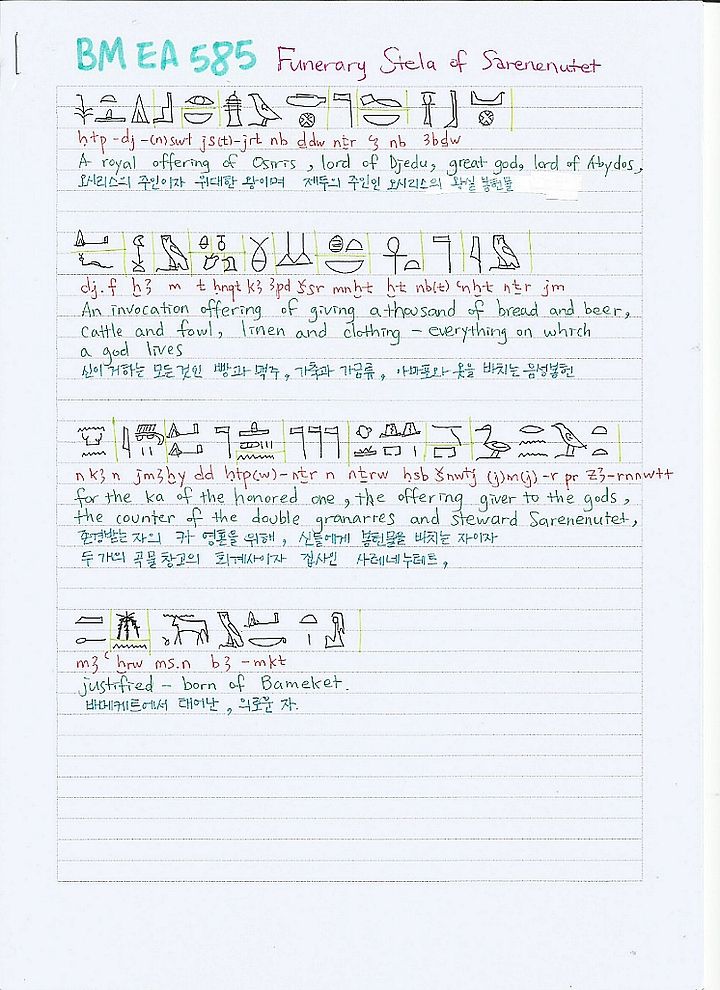 BM EA 585 Funerary Stela of Sarenenutet
ḥtp-dj-(n)swt js(t)-jrt nb ḏdw nṯr ꜥꜣ nb ꜣbḏw
A royal offering of Osiris, lord of Djedu, great god, lord of Abydos,
오시리스의 주인이자 위대한 왕이며 제두의 주인인 오시리스의 왕실 봉헌물
dj.f ḫꜣ m t ḥnqt kꜣ ꜣpd šsr mnḫt ḫt nb(t) ꜥnḫt nṯr jm
An invocation offering of giving a thousand of bread and beer,
cattle and fowl, linen and clothing - everything on which
a god lives
신이 거하는 모든것인 빵과 맥주, 가축과 가금류, 아마포와 옷을 바치는 음성봉헌
n kꜣ n jmꜣḫy dd ḥtp(w)-nṯr n nṯrw ḥsb šnwtj (j)m(j)-r pr zꜣ-rnnwtt
for the ka of the honored one, the offering giver to the gods,
the counter of the double granarres and steward Sarenenutet,
존경받는 자의 카 영혼을 위해, 신들에게 봉헌물을 바치는 자이자
두 개의 곡물창고의 회계사이자 집사인 사레네누테트,
mꜣꜥ ḫrw ms.n bꜣ-mkt
justified - born of Bameket.
바메케트에서 태어난, 의로운 자.